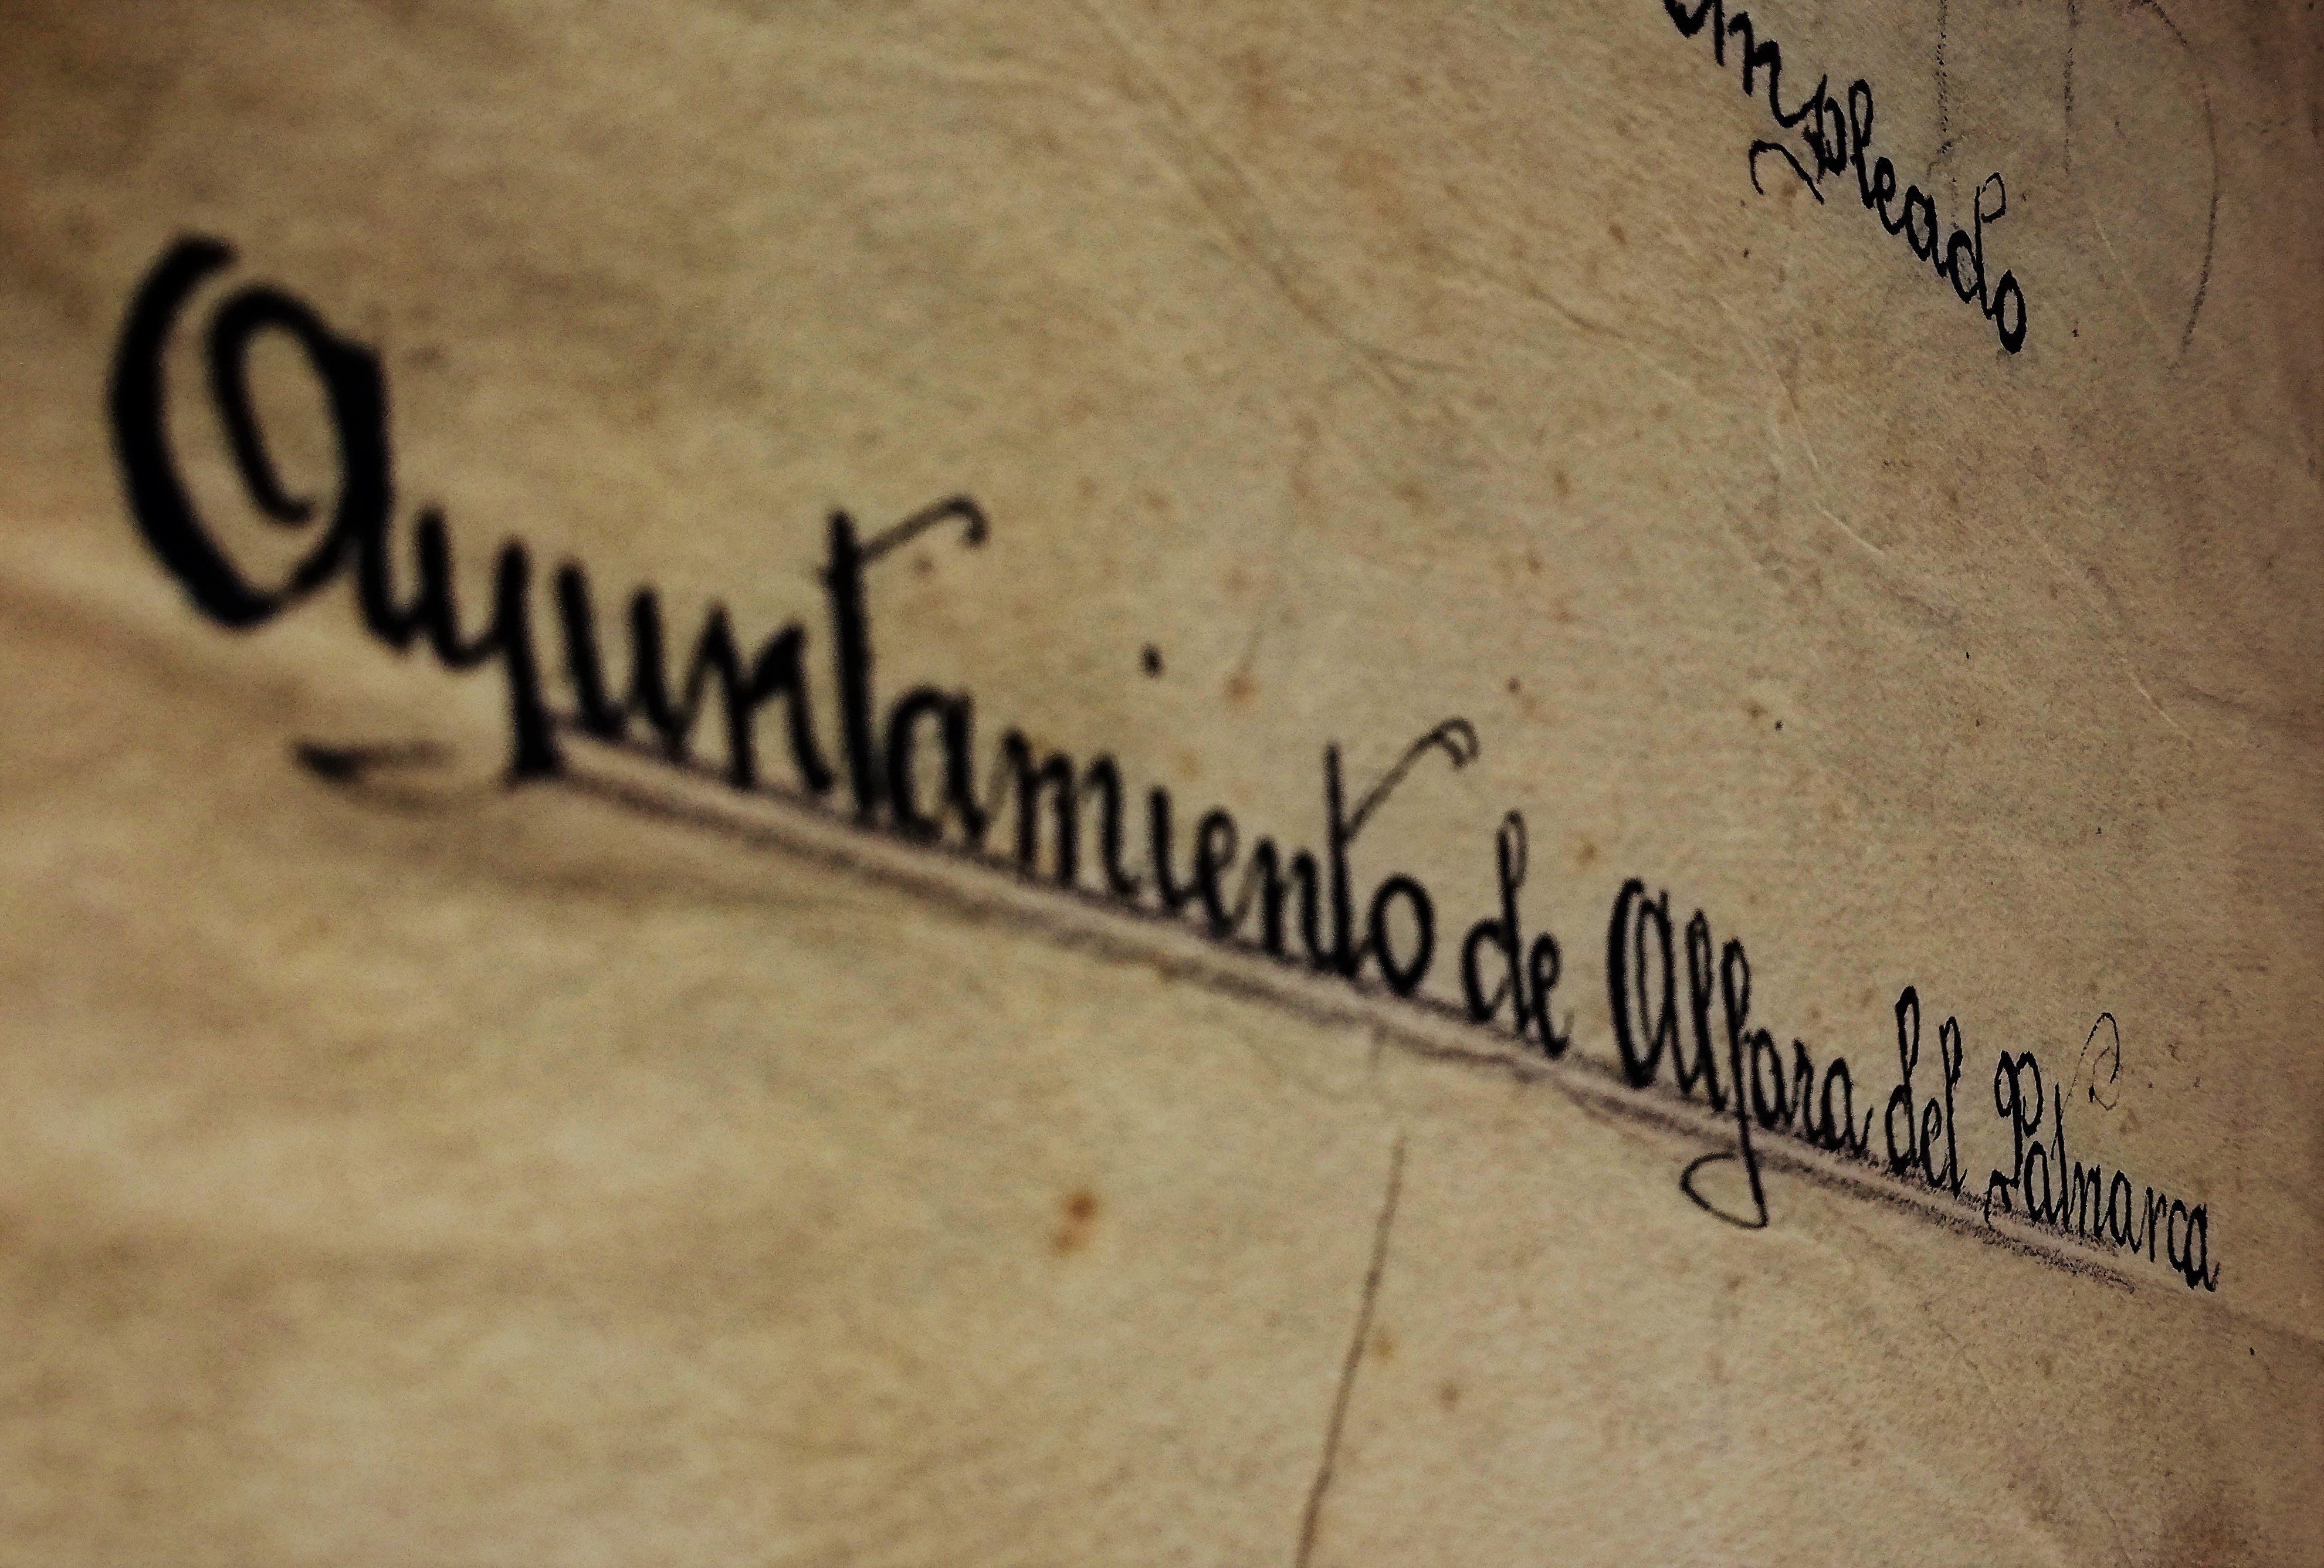 empleado
Ayuntamiento de Alfara del Patriarca